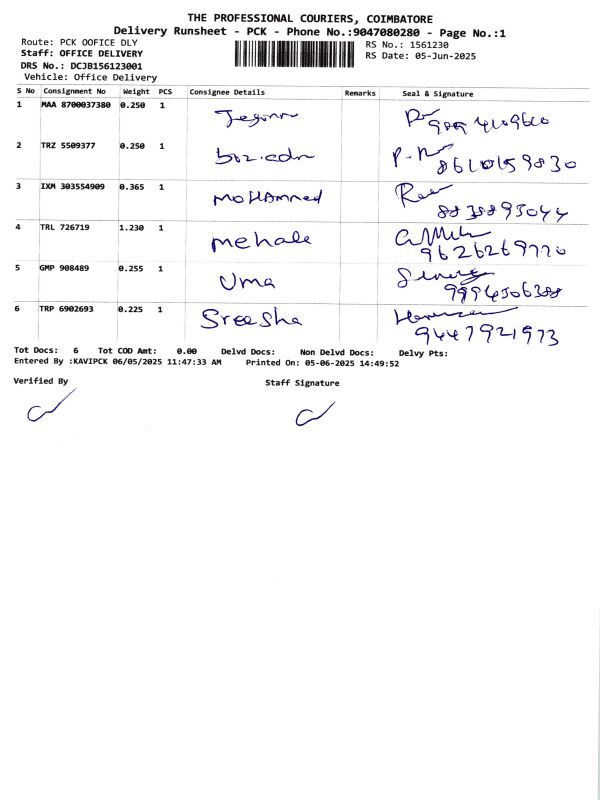 THE PROFESSIONAL COURIERS, COIMBATORE
Delivery Runsheet - PCK - Phone No.:9047080280 - Page No.:1
Route: PCK OOFICE DLY
RS No.: 1561230
Staff: OFFICE DELIVERY
RS Date: 05-Jun-2025
DRS No.: DCJB156123001
Vehicle: Office Delivery
S No Consignment No Weight PCS Consignee Details Remarks Seal & Signature
1 MAA 8700037380 0.250 1
2 TRZ 5509377 0.250 1 8610159830
3 IXM 303554909 0.365 1 Mohammed 8838893044
4 TRL 726719 1.230 1 mehale 9626269770
5 GMP 908489 0.255 1 Uma 9994506388
6 TRP 6902693 0.225 1 Sreesha 9447921973
Tot Docs: 6 Tot COD Amt: 0.00 Delvd Docs: Non Delvd Docs: Delvy Pts:
Entered By :KAVIPCK 06/05/2025 11:47:33 AM Printed On: 05-06-2025 14:49:52
Verified By Staff Signature